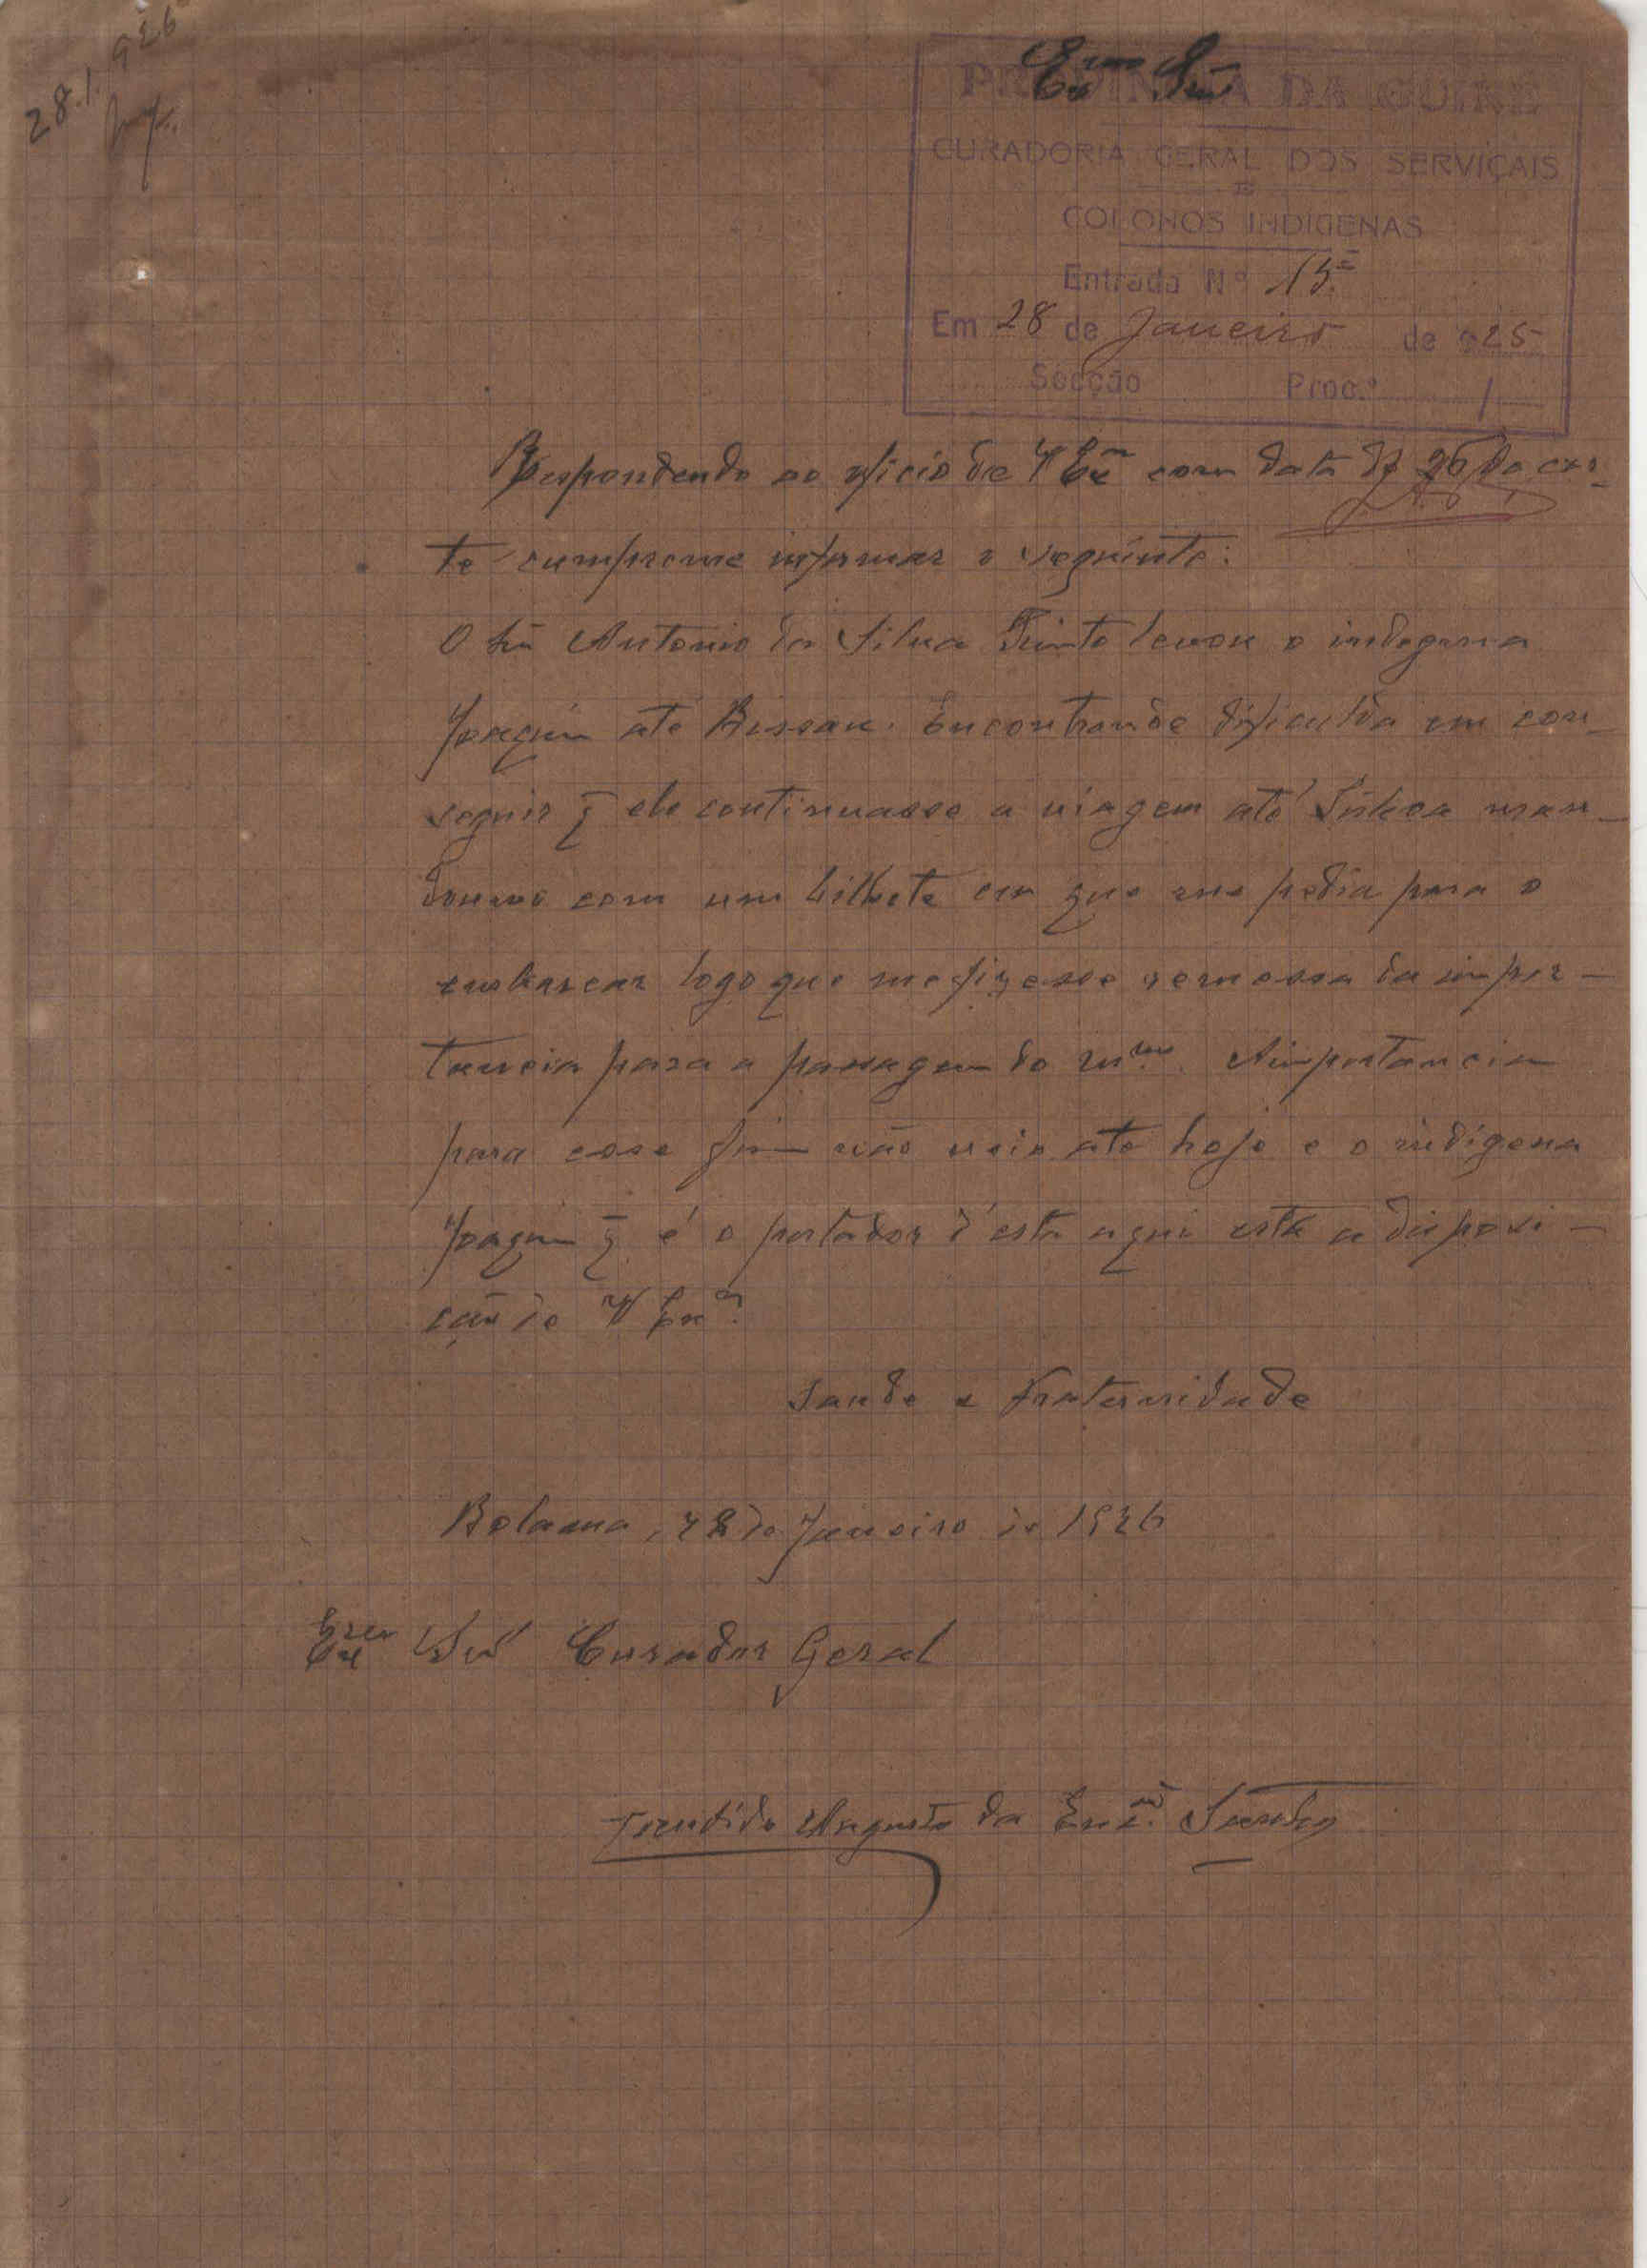 28.1.926
Exmo Snr
PROVINCIA DA GUINÉ
CURADORIA GERAL DOS SERVIÇAIS
E
COLONOS INDIGENAS
Entrada Nº 15
Em 28 de Janeiro de 925
Secção Proc.º 1
Respondendo ao oficio de V Exª com data de 26 do cor-
te cumpreme informar o seguinte:
O Snr Antonio da Silva Pinto levou o indegena
Joaquim até Bissau. Encontrande dificulda em con-
seguir q̃ ele continuasse a viagem até Lisboa man-
doumo com um bilhete em que me pedia para o
embarcar logo que me fizesse remessa da impor-
tancia para a passagem do mmo. A importancia
para esse fim não veio até hoje e o indigena
Joaquim q̃ é o portador d'esta aqui está a disposi-
ção de V Exª.
Saude e Fraternidade
Bolama, 28 de Janeiro de 1926
Exmo Snr Curador Geral
Augusto da